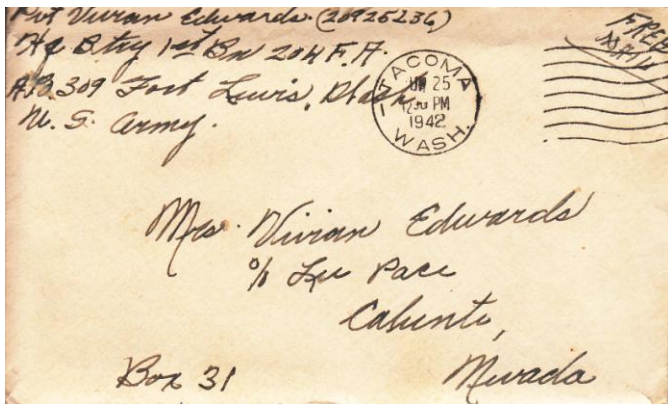 Pvt Vivian Edwards. (20925236)
Hq Btry 1st Bn 204 F.A.
A.P.O. 309 Fort Lewis, Wash.
U.S. Army.
FREE
MAIL
TACOMA
25
12 30 PM
1942
WASH.
Mrs. Vivian Edwards
c/o Lee Pace
Caliente,
Box 31 Nevada